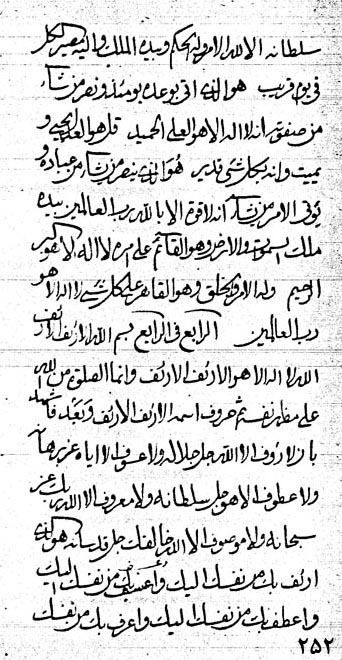 سلطانه الا لله الامر والحكم وبيده الملك واليه يصير كل
فى يوم قريب هو الذى اتى بوعده يومئذ ونصر من يشاء
من صفوته انه لا اله الا هو العلى الحميد قل هو الله يحيى و
يميت وانه بكل شئ قدير هو الذى ينصر من يشاء من عباده و
يؤتى الامر من يشاء انه لا قوة الا بالله رب العالمين بيده
ملك السموات والارض وهو القائم على امره لا اله الا هو
الرحيم وله الامر والخلق وهو القاهر على كل شئ لا اله الا هو
رب العالمين الرابع فى الرابع بسم الله الارئف الارئف
الله لا اله الا هو الارئف الارئف وانما الصلوة من الله
على مظهر نفسه ثم حروف اسمه الارئف الارئف وبعد فاشهد
بان لا رؤف الا الله جل جلاله ولا عزيز الا اياه
ولا عطوف الا هو جل سلطانه ولا معروف الا الله ربك عز
سبحانه ولا موصوف الا الله خالقك جل قدسه انه هو الذى
ارئف بك من نفسك اليك من نفسك اليك
واعطف بك من نفسك اليك واعرف بك من نفسك
٢٥٢